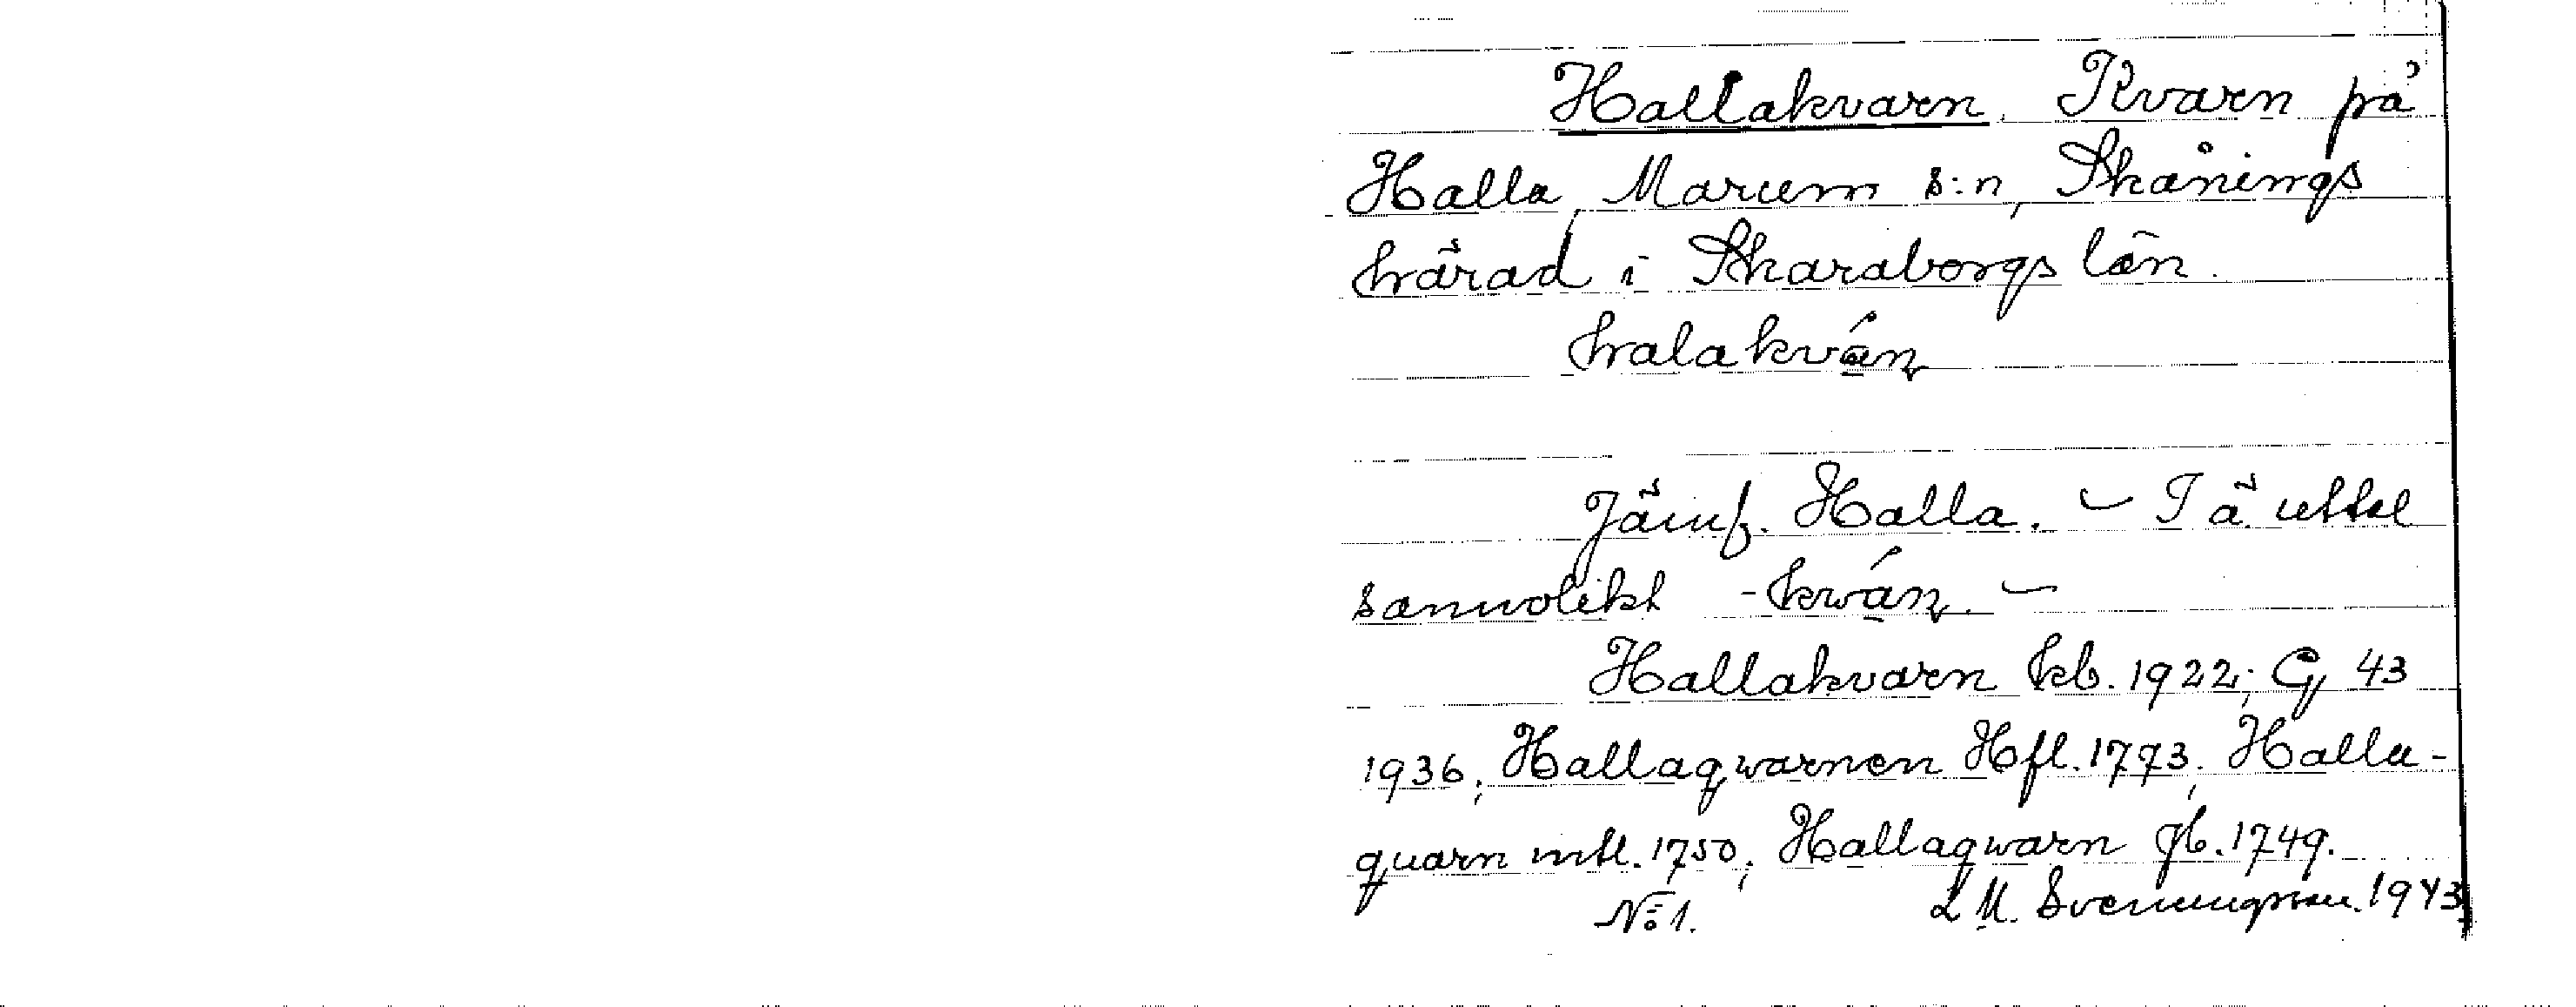 Hallakvarn. Kvarn på
Halla, Marum s:n, Skånings
härad i Skaraborgs län.
halakván
Jämf. Halla. – I ä. uttal
sannolikt -kwán. –
Hallakvarn kb. 1922; Gj 43
1936; Hallaqwarnen Hfl. 1773; Halla-
quarn mtl. 1750; Hallaqwarn gb. 1749.
No 1. L M. Svenungsson. 1943